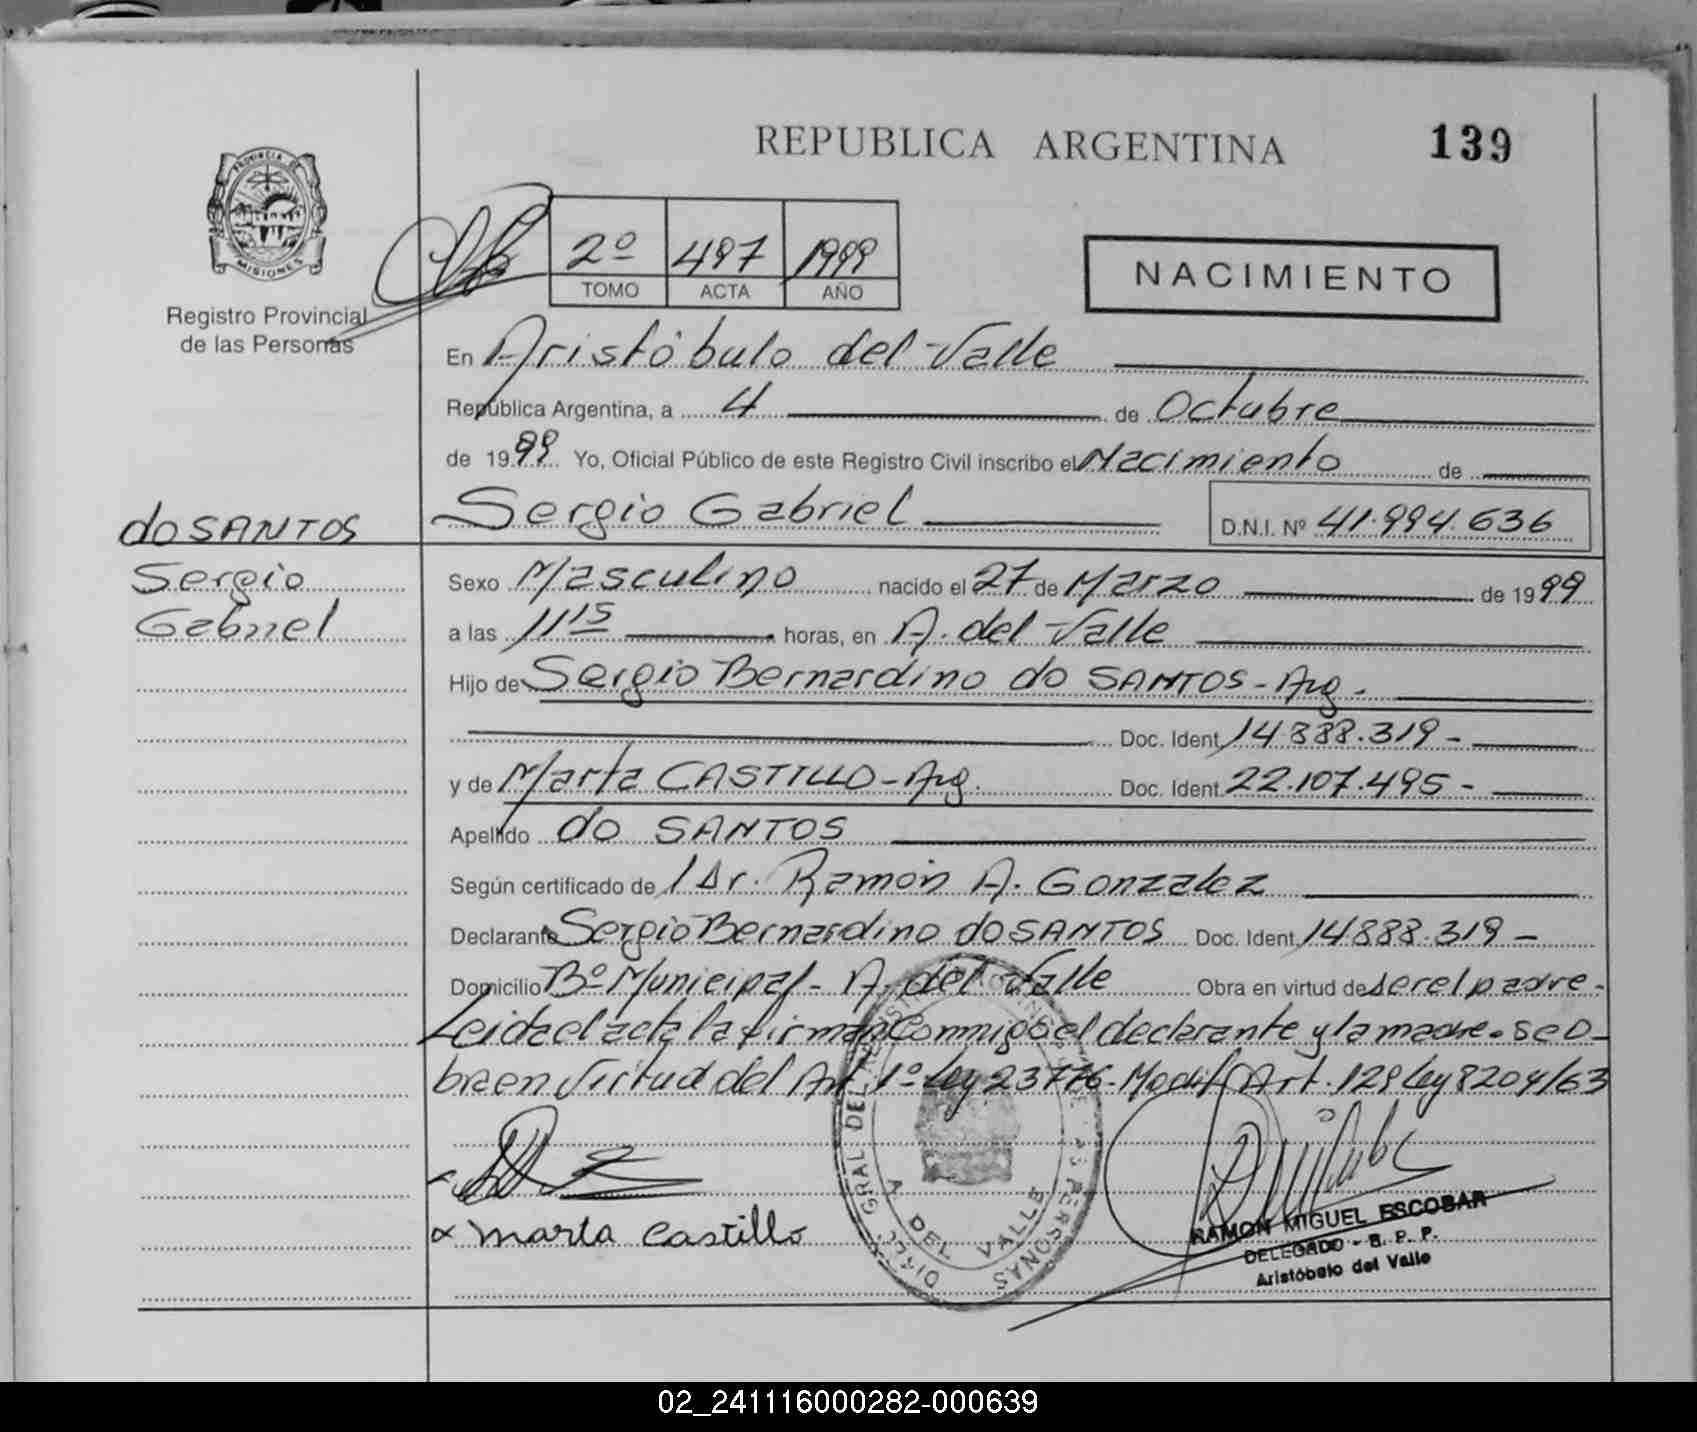 REPUBLICA ARGENTINA
139
PROVINCIA DE
MISIONES
Registro Provincial
de las Personas
2º 497 1999
TOMO ACTA AÑO
NACIMIENTO
En Aristóbulo del Valle
República Argentina, a 4 de Octubre
de 1999 Yo, Oficial Público de este Registro Civil inscribo el Nacimiento de
Sergio Gabriel D.N.I. Nº 41.994.636
do SANTOS
Sergio
Gabriel
Sexo Masculino nacido el 27 de Marzo de 1999
a las 11 15 horas, en A. del Valle
Hijo de Sergio Bernardino do SANTOS - Arg.
Doc. Ident. 14.888.319 -
y de Marta CASTILLO - Arg. Doc. Ident. 22.107.495 -
Apellido do SANTOS
Según certificado de l Dr. Ramón A. Gonzalez
Declarante Sergio Bernardino do SANTOS Doc. Ident. 14888.319 -
Domicilio Bº Municipal - A. del Valle Obra en virtud de ser el padre -
Leida el acta la firman conmigo el declarante y la madre. Se o-
bra en virtud del Art. 1º Ley 23776 - Modif. Art. 129 Ley 8204/63
Marta Castillo
A DEL VALLE
RAMON MIGUEL ESCOBAR
DELEGADO - R. P. P.
Aristóbulo del Valle
02_241116000282-000639